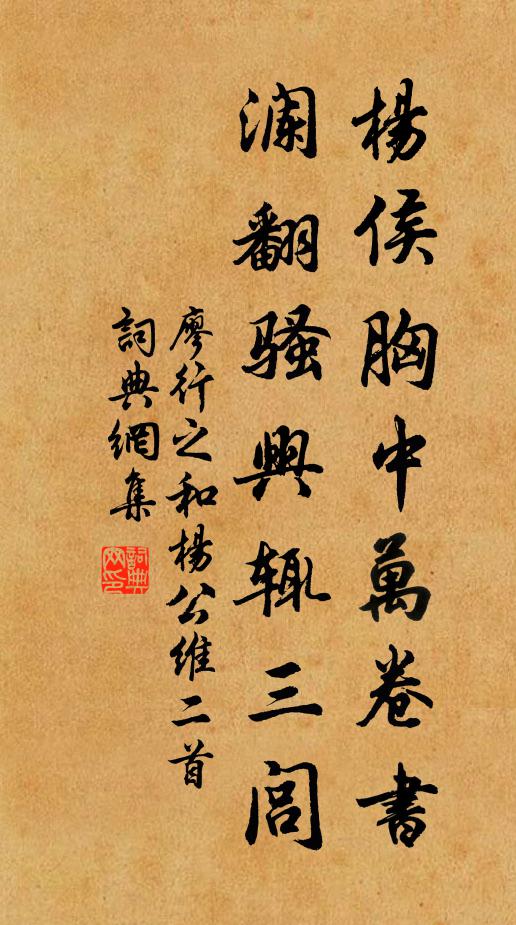 楊侯胸中萬卷書
澜翻骚興辄三闾
廖行之和楊公維二首
詞典網集
詞典网印